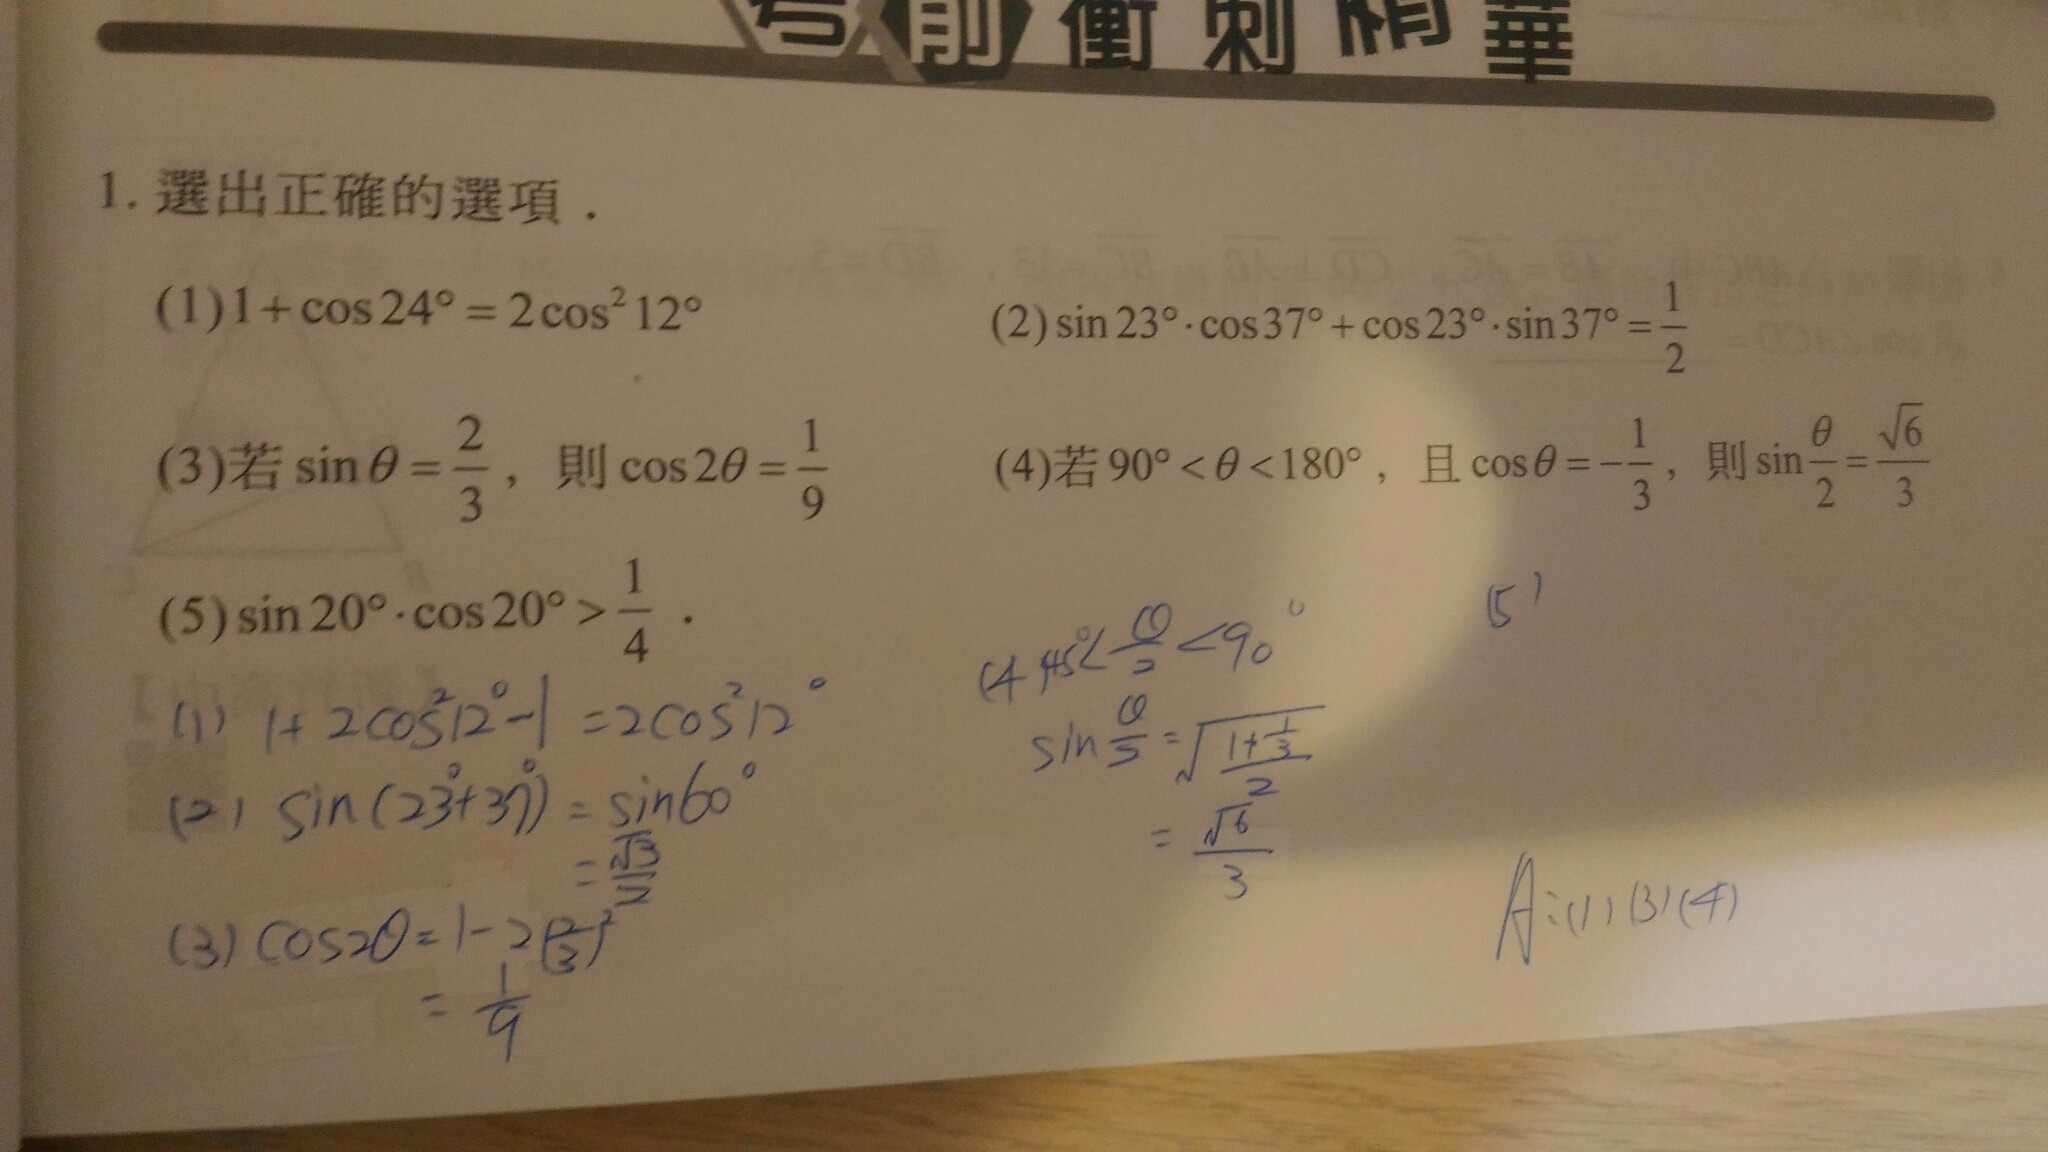 考前衝刺精華
1. 選出正確的選項.
(1) 1 + cos 24° = 2 cos² 12°
(2) sin 23° · cos 37° + cos 23° · sin 37° = 1/2
(3) 若 sin θ = 2/3, 則 cos 2θ = 1/9
(4) 若 90° < θ < 180°, 且 cos θ = -1/3, 則 sin θ/2 = √6/3
(5) sin 20° · cos 20° > 1/4 .
(1) 1 + 2cos²12° - 1 = 2cos²12°
(2) sin(23°+37°) = sin60°
= √3/2
(3) cos2θ = 1 - 2(2/3)²
= 1/9
(4) 45° < θ/2 < 90°
sin θ/2 = √((1+1/3)/2)
= √6/3
(5)
A:(1)(3)(4)